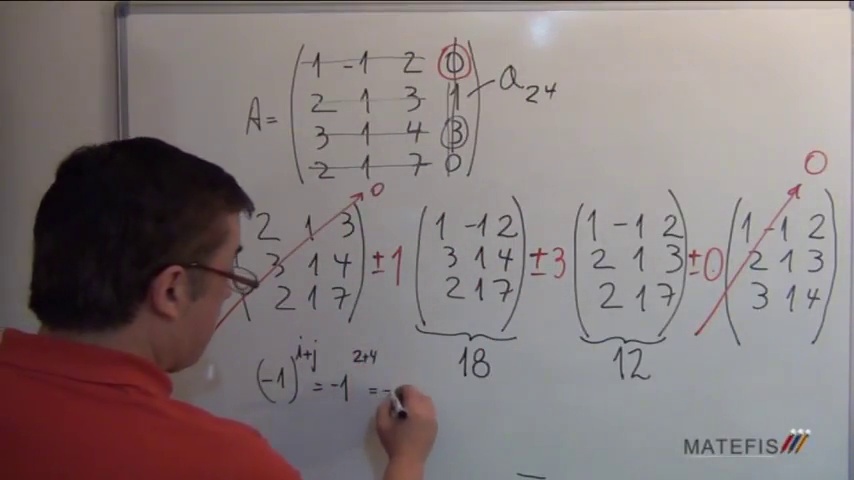 A = ( 1 -1 2 0
2 1 3 1
3 1 4 3
2 1 7 0 ) a24
( 2 1 3
3 1 4
2 1 7 ) 0
± 1 ( 1 -1 2
3 1 4
2 1 7 )
18
± 3 ( 1 -1 2
2 1 3
2 1 7 )
12
± 0 ( 1 -1 2
2 1 3
3 1 4 ) 0
(-1)^i+j = -1^2+4 = -
MATEFIS